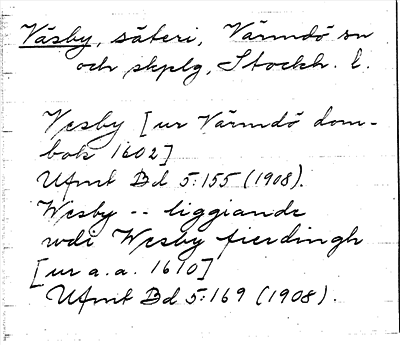 Väsby, säteri, Värmdö sn
och skplg, Stockh. l.
Vesby [ur Värmdö dom-
bok 1602]
Ufmt Bd 5:155 (1908).
Wesby -- liggiande
wdi Wesby fierdingh
[ur a.a. 1610]
Ufmt Bd 5:169 (1908).